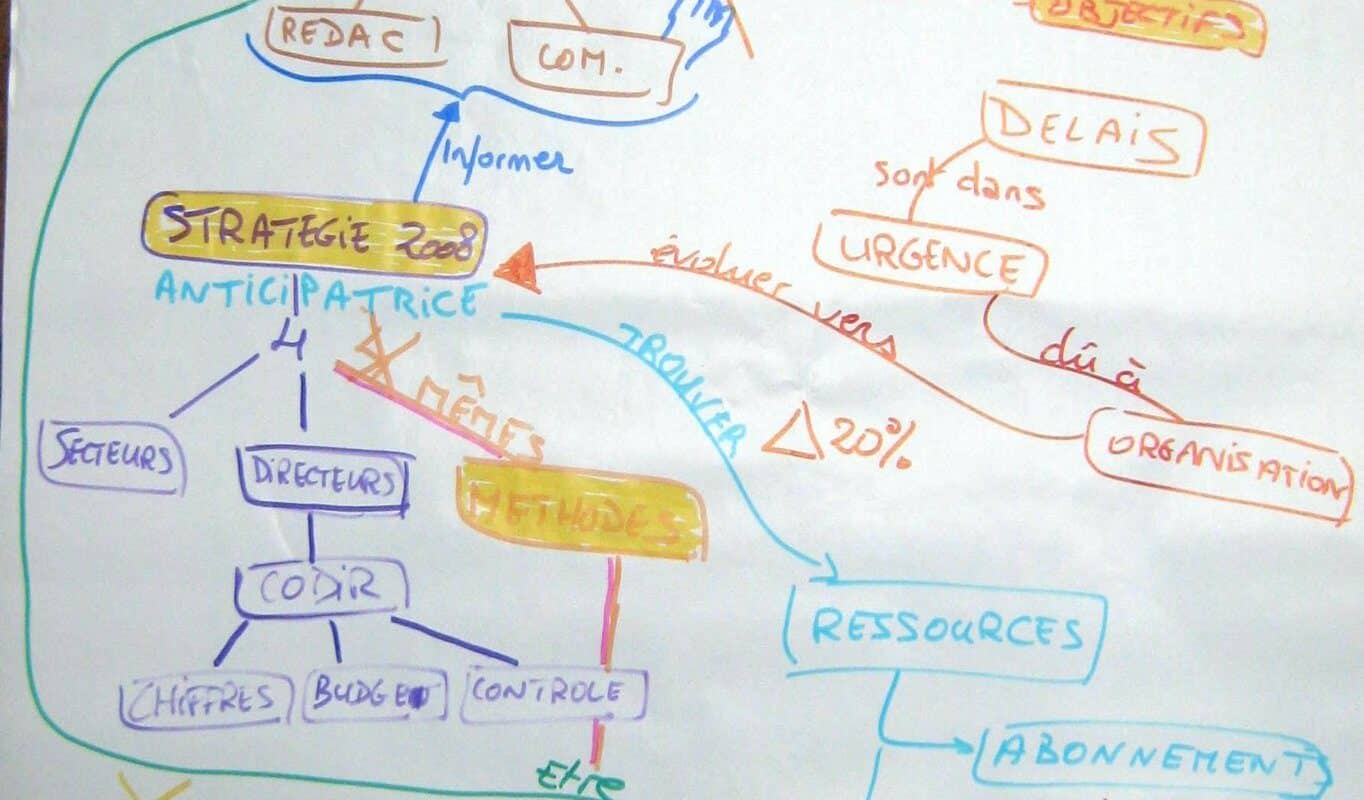 OBJECTIFS
REDAC
COM.
DELAIS
Informer
sont dans
STRATEGIE 2008
URGENCE
évoluer vers
ANTICIPATRICE
4
TROUVER
dû à
MÊMES
Δ 20%
SECTEURS
DIRECTEURS
ORGANISATION
METHODES
CODIR
RESSOURCES
CHIFFRES
BUDGET
CONTROLE
ABONNEMENTS
Etre